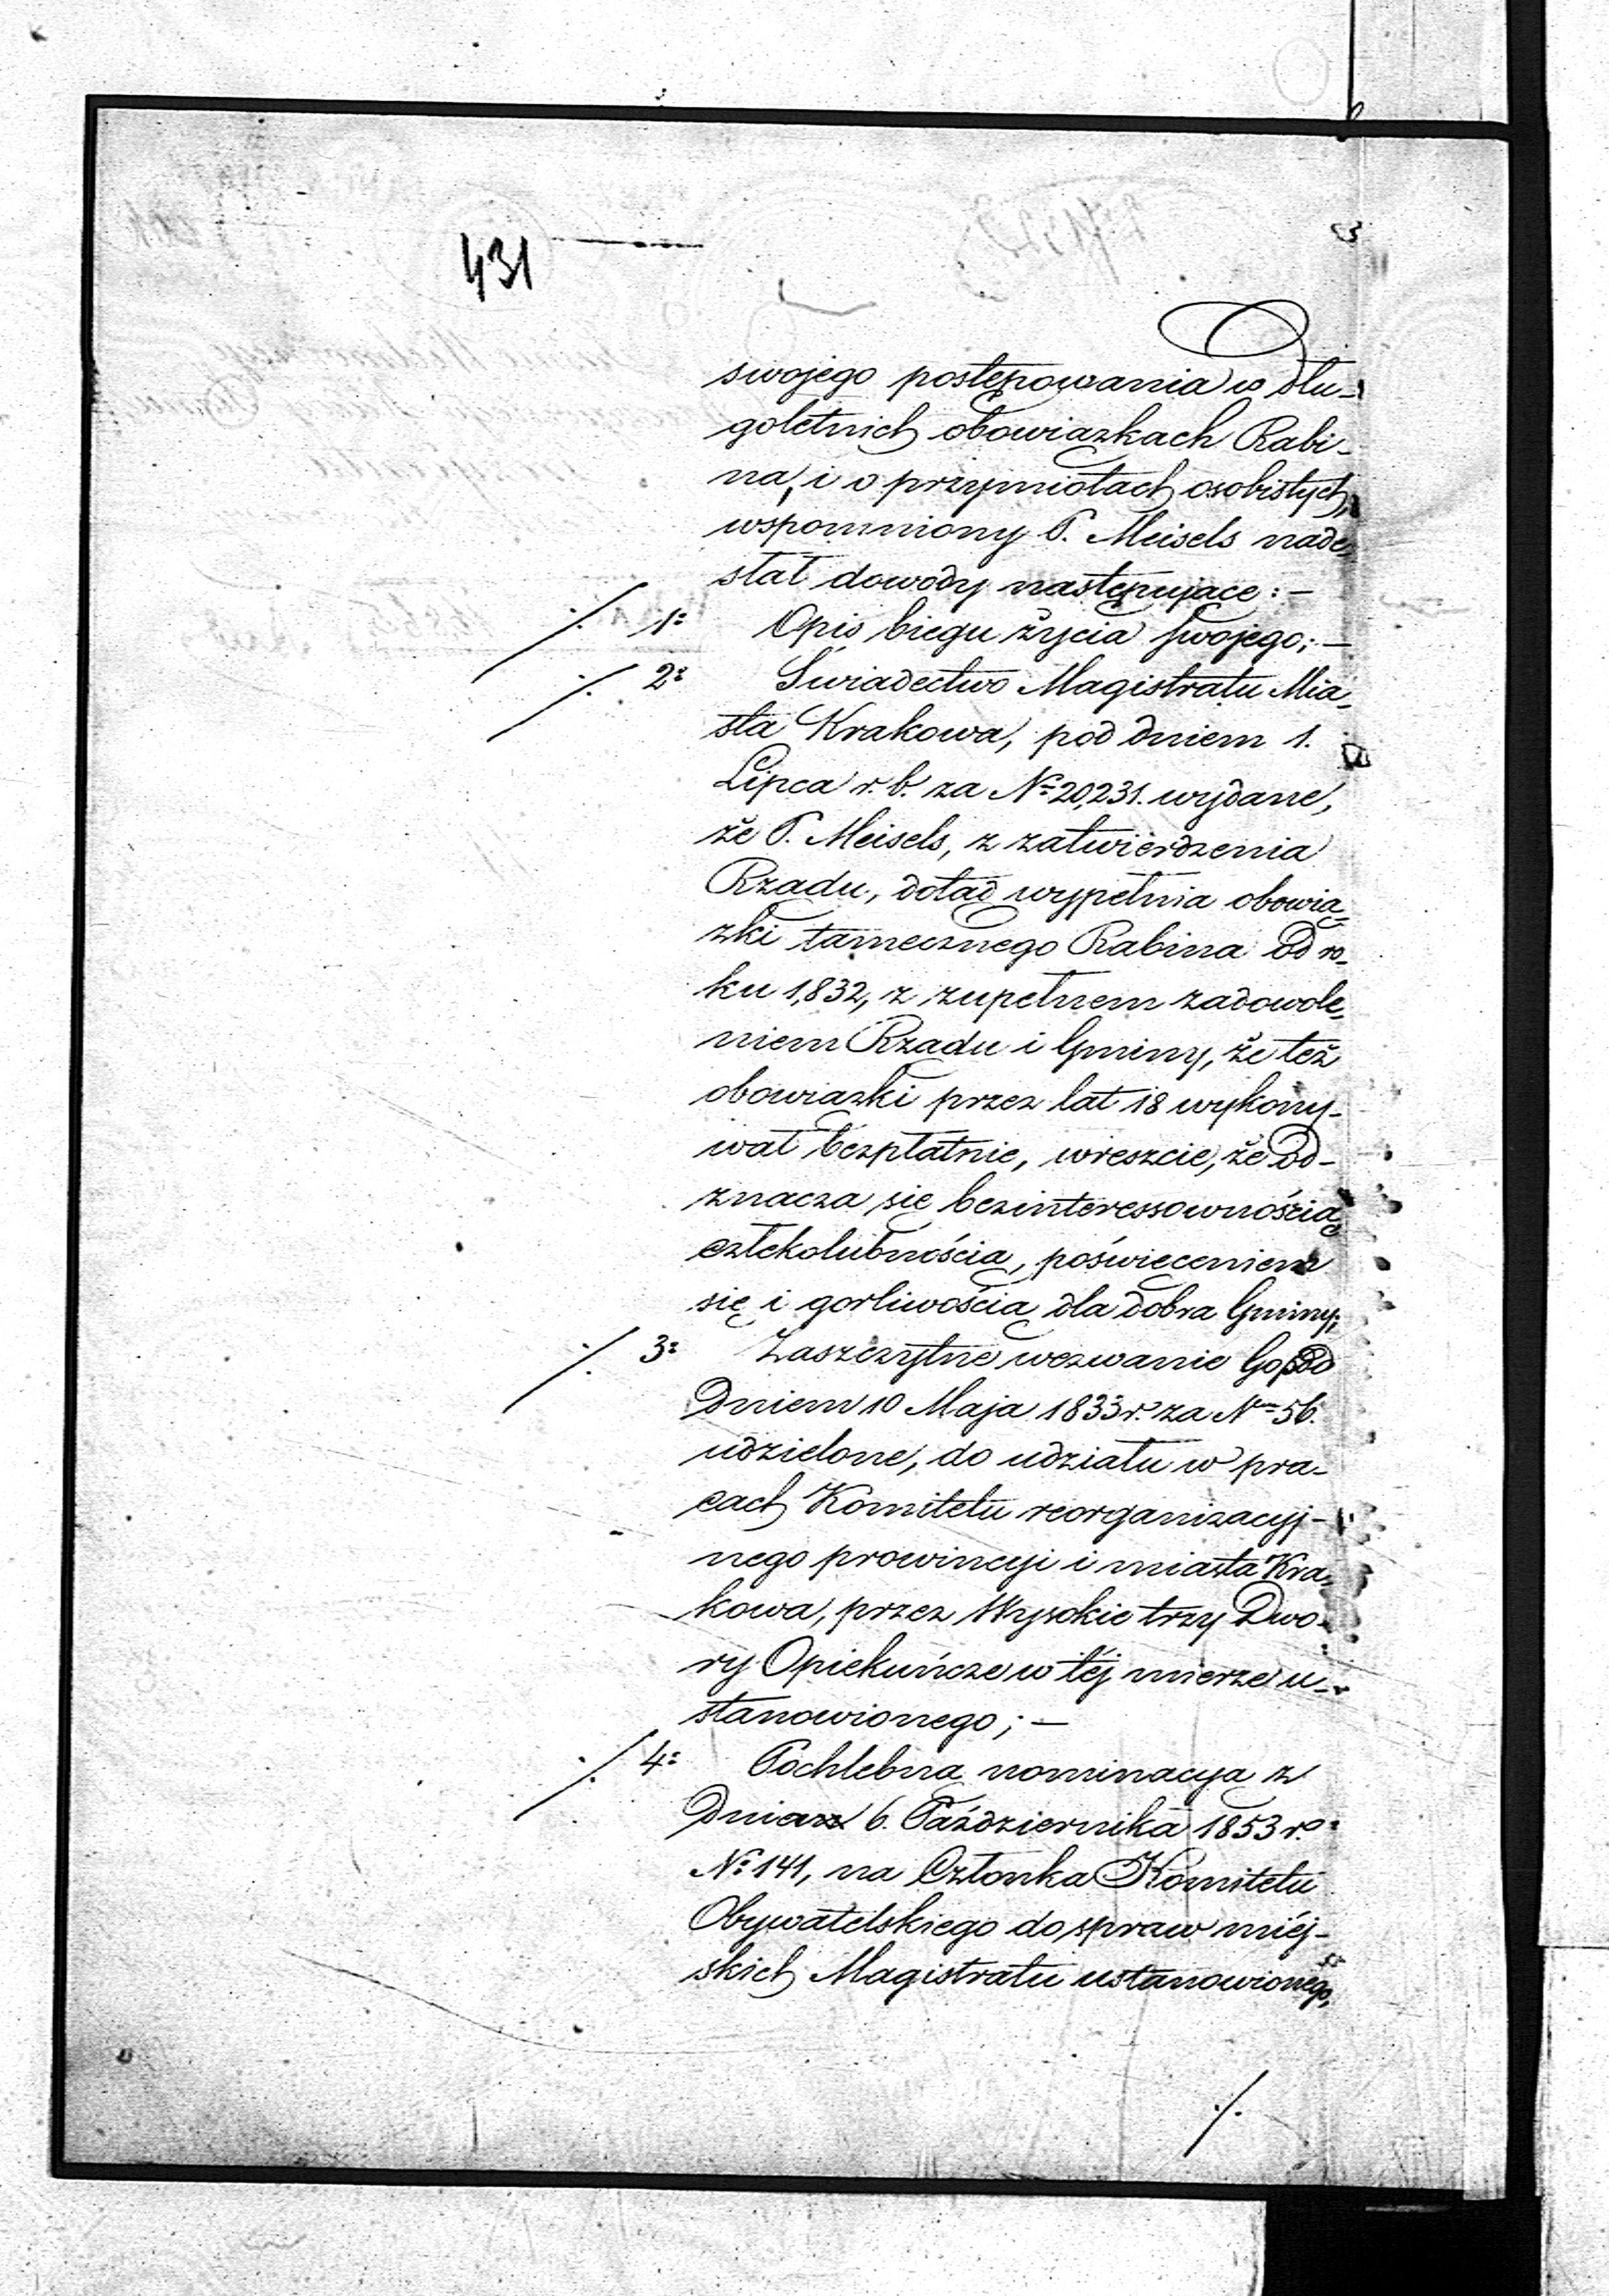 431
swojego postępowania w dłu-
goletnich obowiązkach Rabi-
na, i o przymiotach osobistych,
wspomniony P. Meisels nade-
słał dowody następujące: —
1: Opis biegu życia swojego; —
2: Świadectwo Magistratu Mia-
sta Krakowa, pod dniem 1.
Lipca r. b. za No 20,231. wydane,
że P. Meisels, z zatwierdzenia
Rządu, dotąd wypełnia obowią-
zki tamecznego Rabina od ro-
ku 1,832, z zupełnem zadowole-
niem Rządu i Gminy, że też
obowiązki przez lat 18 wykony-
wał bezpłatnie, wreszcie, że od-
znacza się bezinteressownością
człekolubnością, poświęceniem
się i gorliwością dla dobra Gminy;
3: Zaszczytne wezwanie Go pod
dniem 10 Maja 1833 r. za No 56.
udzielone, do udziału w pra-
cach Komitetu reorganizacyj-
nego prowincyi i miasta Kra-
kowa, przez Wysokie trzy Dwo-
ry Opiekuńcze w téj mierze u-
stanowionego; —
4: Pochlebna nominacya z
dnia 6. Października 1853 r.
No 141, na Członka Komitetu
Obywatelskiego do spraw miéj-
skich Magistratu ustanowionego,